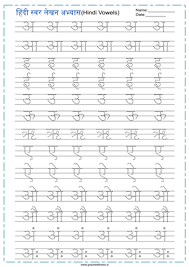 हिंदी स्वर लेखन अभ्यास(Hindi Vowels)
Name:
Date:
अ अ अ अ अ अ अ
आ आ आ आ आ आ आ
इ इ इ इ इ इ इ
ई ई ई ई ई ई ई
उ उ उ उ उ उ उ
ऊ ऊ ऊ ऊ ऊ ऊ ऊ
ऋ ऋ ऋ ऋ ऋ ऋ ऋ
ए ए ए ए ए ए ए
ऐ ऐ ऐ ऐ ऐ ऐ ऐ
ओ ओ ओ ओ ओ ओ ओ
औ औ औ औ औ औ औ
अं अं अं अं अं अं अं
अः अः अः अः अः अः अः